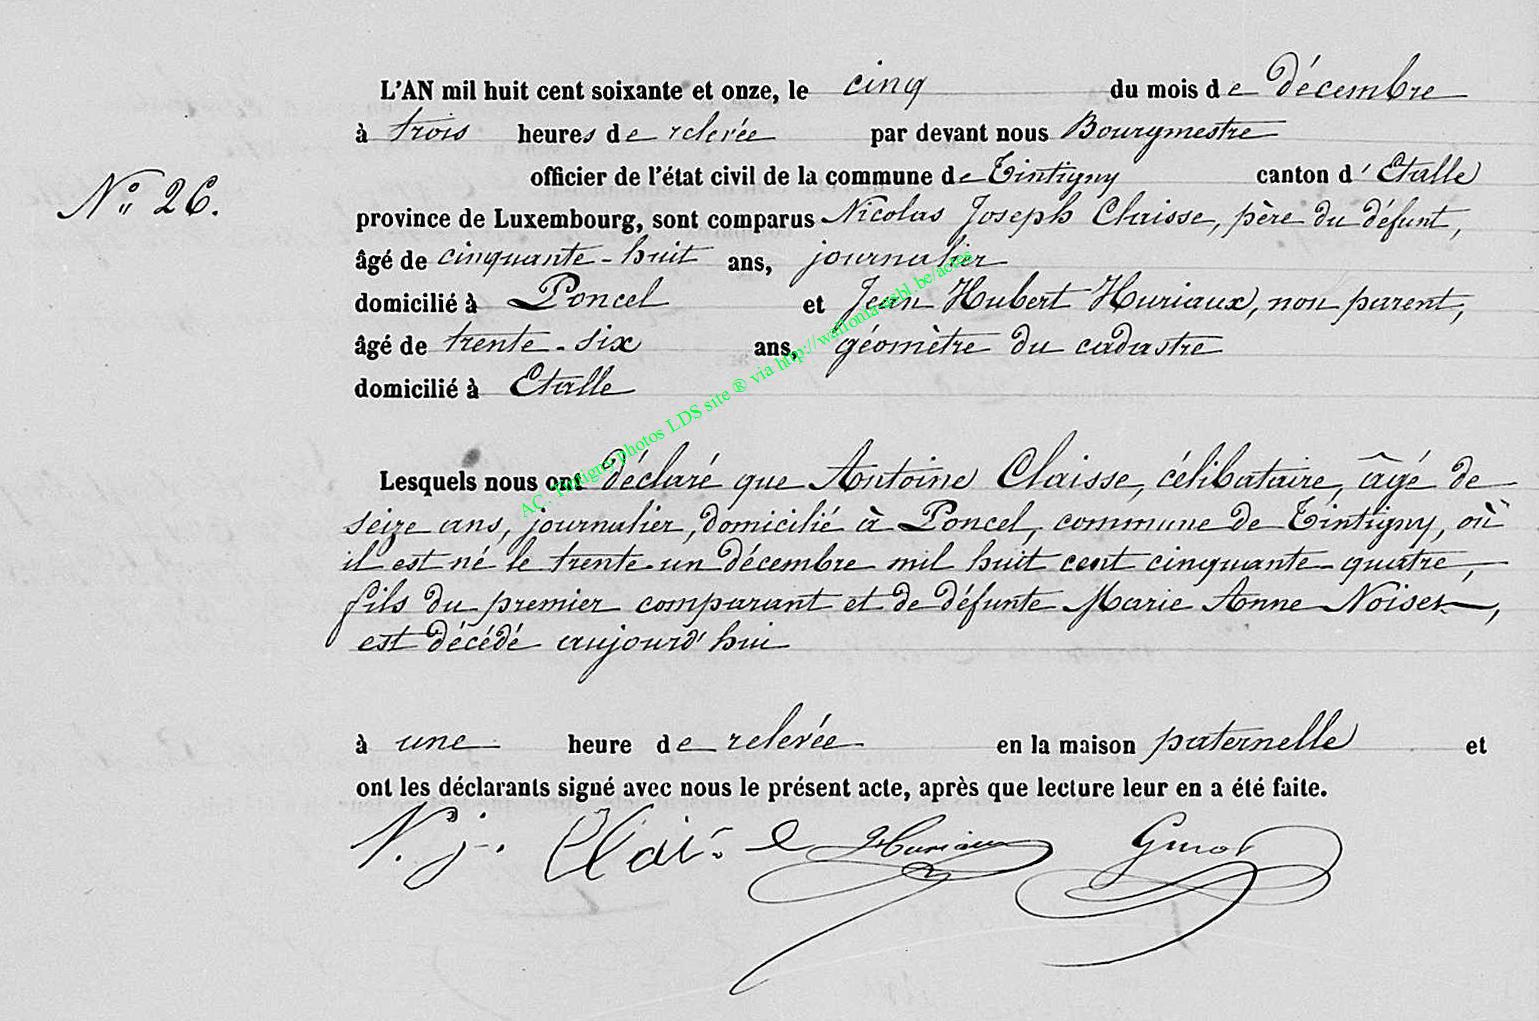 L'AN mil huit cent soixante et onze, le cinq du mois de décembre
à trois heures de relevée par devant nous Bourgmestre
officier de l'état civil de la commune de Tintigny canton d'Etalle
N° 26.
province de Luxembourg, sont comparus Nicolas Joseph Claisse, père du défunt,
âgé de cinquante-huit ans, journalier
domicilié à Poncel et Jean Hubert Huriaux, non parent,
âgé de trente-six ans, géomètre du cadastre
domicilié à Etalle
AC Tintigny photos LDS site ® via http://wallonia-asbl.be/actes
Lesquels nous ont déclaré que Antoine Claisse, célibataire, âgé de
seize ans, journalier, domicilié à Poncel, commune de Tintigny, où
il est né le trente-un décembre mil huit cent cinquante-quatre,
fils du premier comparant et de défunte Marie Anne Noiset,
est décédé aujourd'hui
à une heure de relevée en la maison paternelle et
ont les déclarants signé avec nous le présent acte, après que lecture leur en a été faite.
N. j. Huriaux